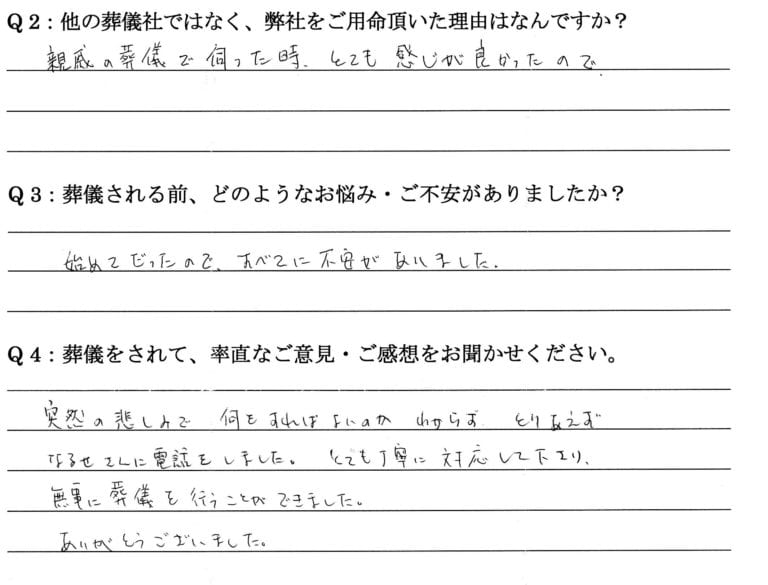 Q2：他の葬儀社ではなく、弊社をご用命頂いた理由はなんですか？
親戚の葬儀で伺った時、とても感じが良かったので
Q3：葬儀される前、どのようなお悩み・ご不安がありましたか？
始めてだったので、すべてに不安がありました。
Q4：葬儀をされて、率直なご意見・ご感想をお聞かせください。
突然の悲しみで 何をすればよいのか わからず とりあえず
なるせさんに電話をしました。とても丁寧に対応して下さり、
無事に葬儀を行うことができました。
ありがとうございました。